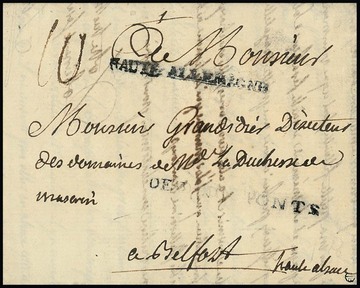 10
A Monsieur
HAUTE ALLEMAGNE
Monsieur Grandidier Directeur
des domaines de Me La Duchesse de
mazarin
DEUX PONTS
a Belfort
haute alsace